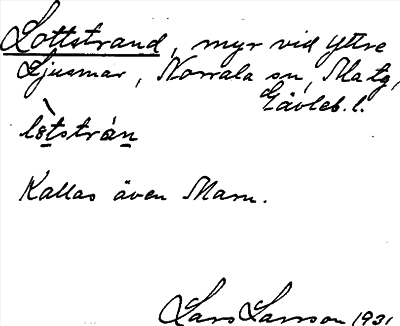 Lottstrand, myr vid Yttre
Ljusmar, Norrala sn, Matg,
Gävleb. l.
lòtstrán
Kallas även Marn.
Lars Larsson 1931